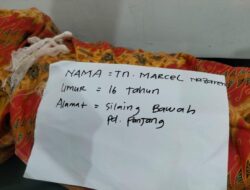 NAMA = Tn. MARCEL Nazaren
Umur = 16 tahun
Alamat = Silaing Bawah
Pd. Panjang